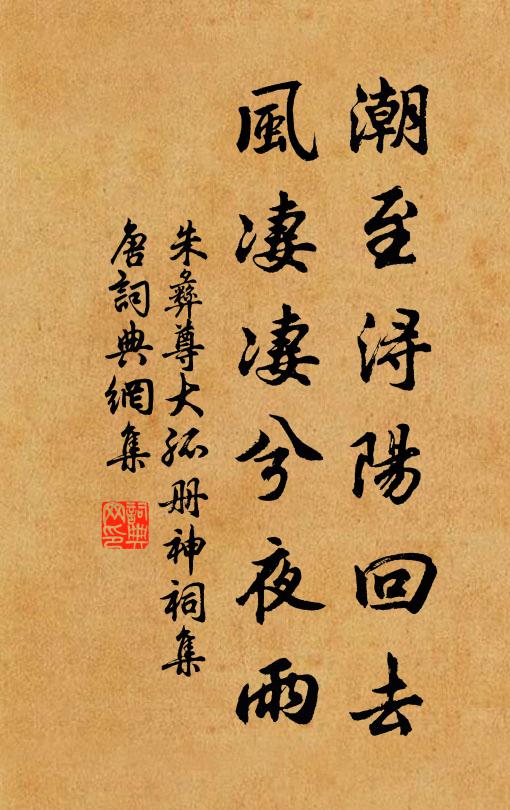 潮至浔陽回去
風凄凄兮夜雨
朱彝尊大孤册神祠集
唐詞典網集
詞典
网印